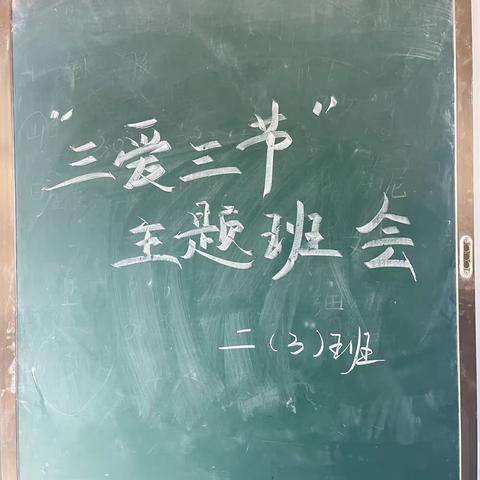 “三爱三节”
主题班会
二（3）班